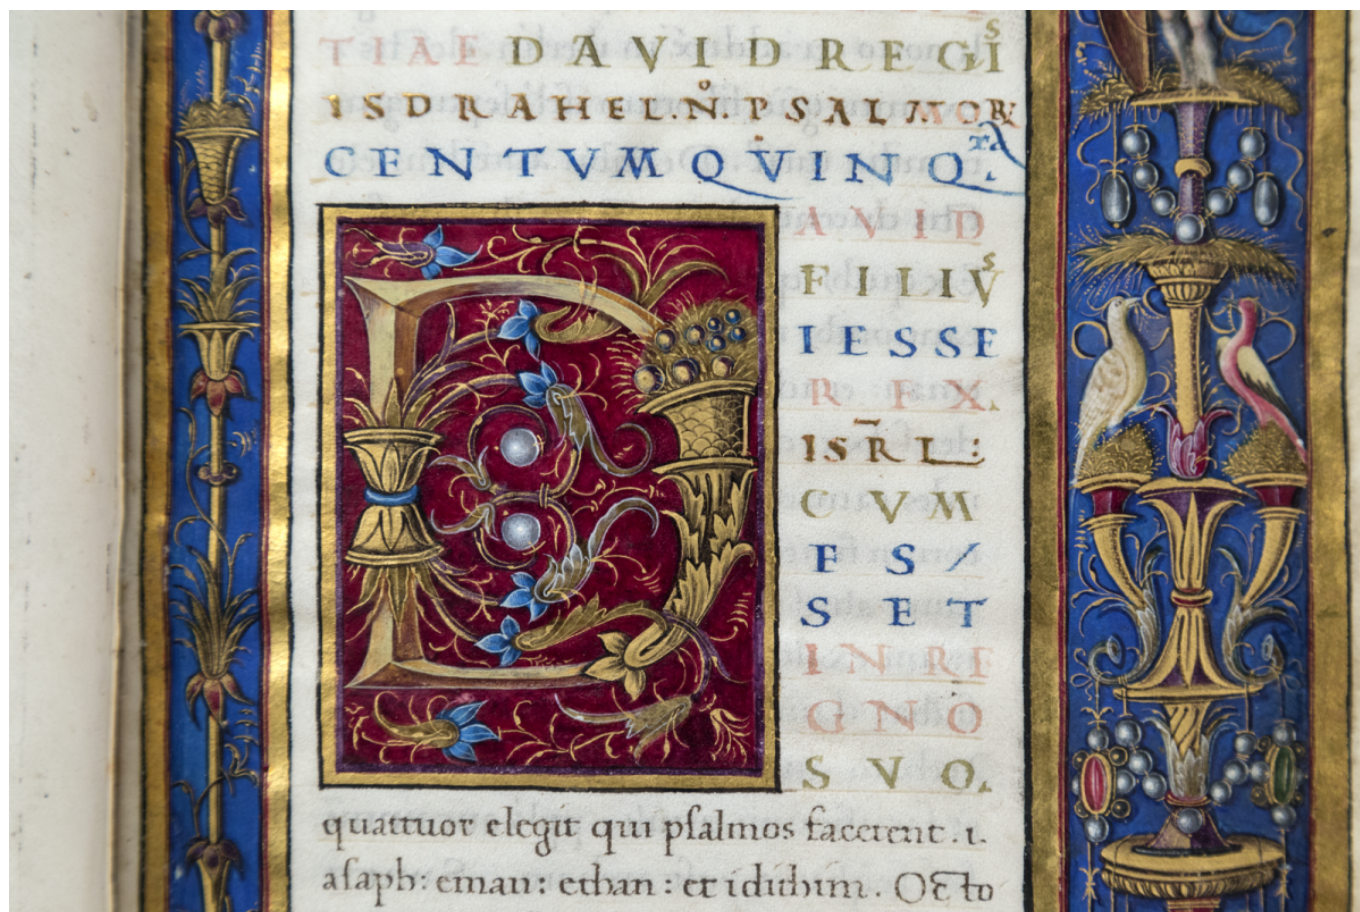 TIAE DAVID REGIS
ISDRAHEL.N̊.PSALMOR̨
CENTVM QVINQ̨ta.
DAVID
FILIVS
IESSE
REX.
ISR̄L:
CVM
ES/
SET
INRE
GNO
SVO.
quattuor elegit qui pſalmos facerent.ı.
aſaph: eman: ethan: et idithim. Octo